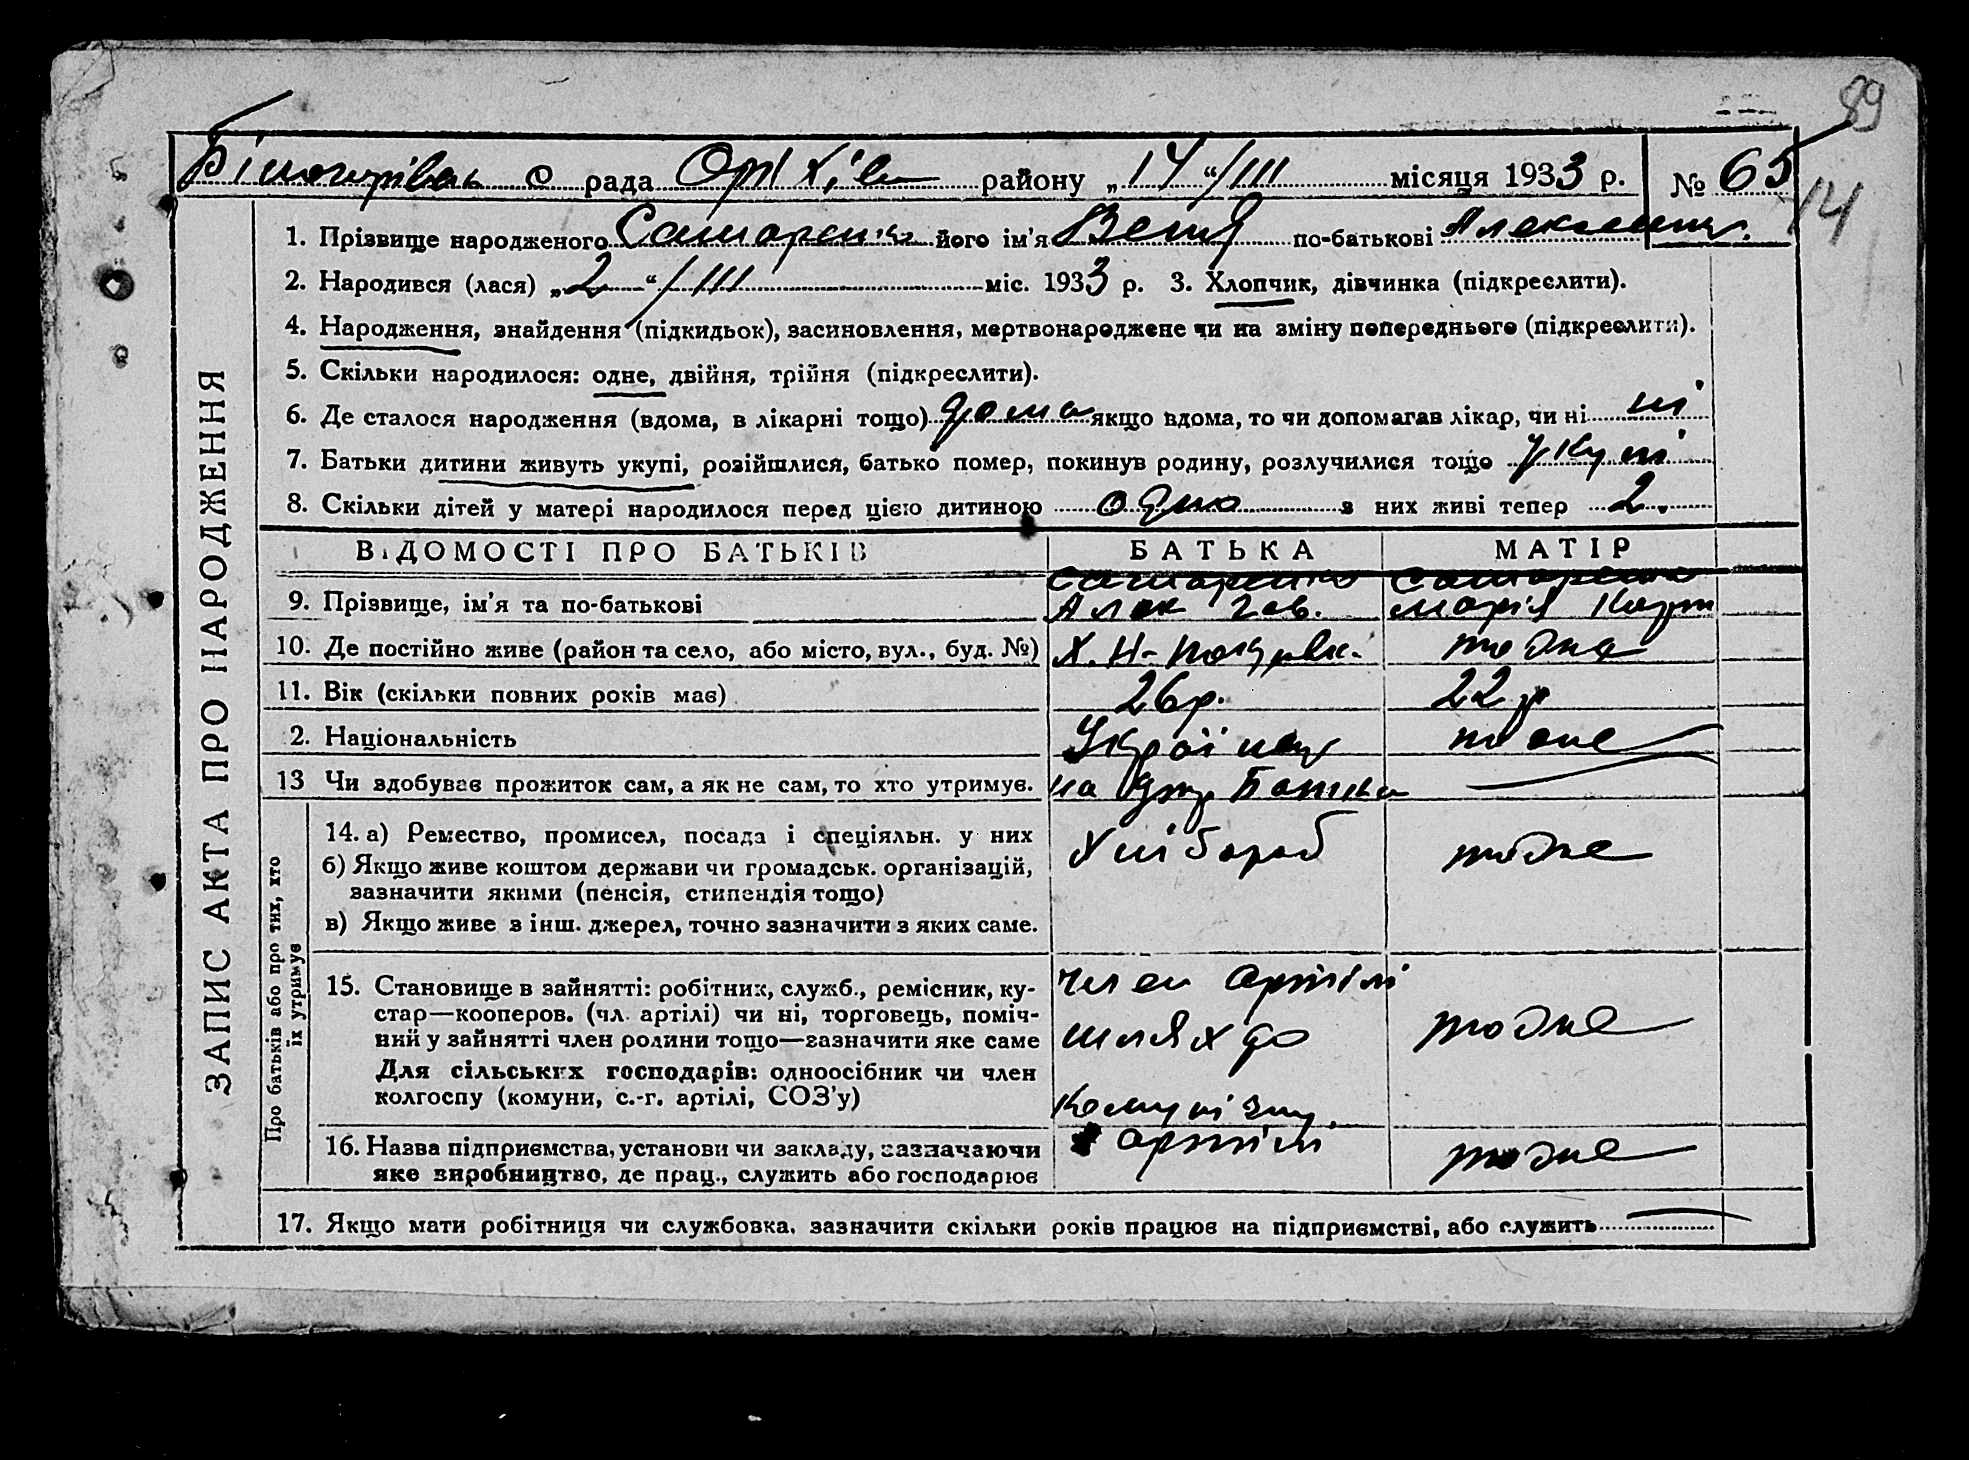 89
Білогорівськ с рада Оріхів району „14“/III місяця 1933 р. № 65
14
ЗАПИС АКТА ПРО НАРОДЖЕННЯ
1. Прізвище народженого Самаренко його ім'я по-батькові
2. Народився (лася) „2“/III міс. 1933 р. 3. Хлопчик, дівчинка (підкреслити).
4. Народження, знайдення (підкидьок), засиновлення, мертвонароджене чи на зміну попереднього (підкреслити).
5. Скільки народилося: одне, двійня, трійня (підкреслити).
6. Де сталося народження (вдома, в лікарні тощо) дома якщо вдома, то чи допомагав лікар, чи ні ні
7. Батьки дитини живуть укупі, розійшлися, батько помер, покинув родину, розлучилися тощо укупі
8. Скільки дітей у матері народилося перед цією дитиною одно з них живі тепер 2.
ВІДОМОСТІ ПРО БАТЬКІВ БАТЬКА МАТІР
Самаренко Самаренко
9. Прізвище, ім'я та по-батькові Алек Марія
10. Де постійно живе (район та село, або місто, вул., буд. №) тодна
11. Вік (скільки повних років має) 26 р. 22 р
2. Національність Українец
13 Чи здобуває прожиток сам, а як не сам, то хто утримує. на Батька
Про батьків або про тих, хто їх утримує
14. а) Ремество, промисел, посада і спеціяльн. у них Хлібороб тодне
б) Якщо живе коштом держави чи громадськ. організацій,
зазначити якими (пенсія, стипендія тощо)
в) Якщо живе з інш. джерел, точно зазначити з яких саме.
15. Становище в зайнятті: робітник, служб., ремісник, ку- Член артілі
стар—кооперов. (чл. артілі) чи ні, торговець, поміч- шлях до тодне
ний у зайнятті член родини тощо—зазначити яке саме
Для сільських господарів: одноосібник чи член
колгоспу (комуни, с.-г. артілі, СОЗ'у) Комунізму
16. Назва підприємства, установи чи закладу, зазначаючи артілі тодне
яке виробництво, де прац., служить або господарює
17. Якщо мати робітниця чи службовка, зазначити скільки років працює на підприємстві, або служить